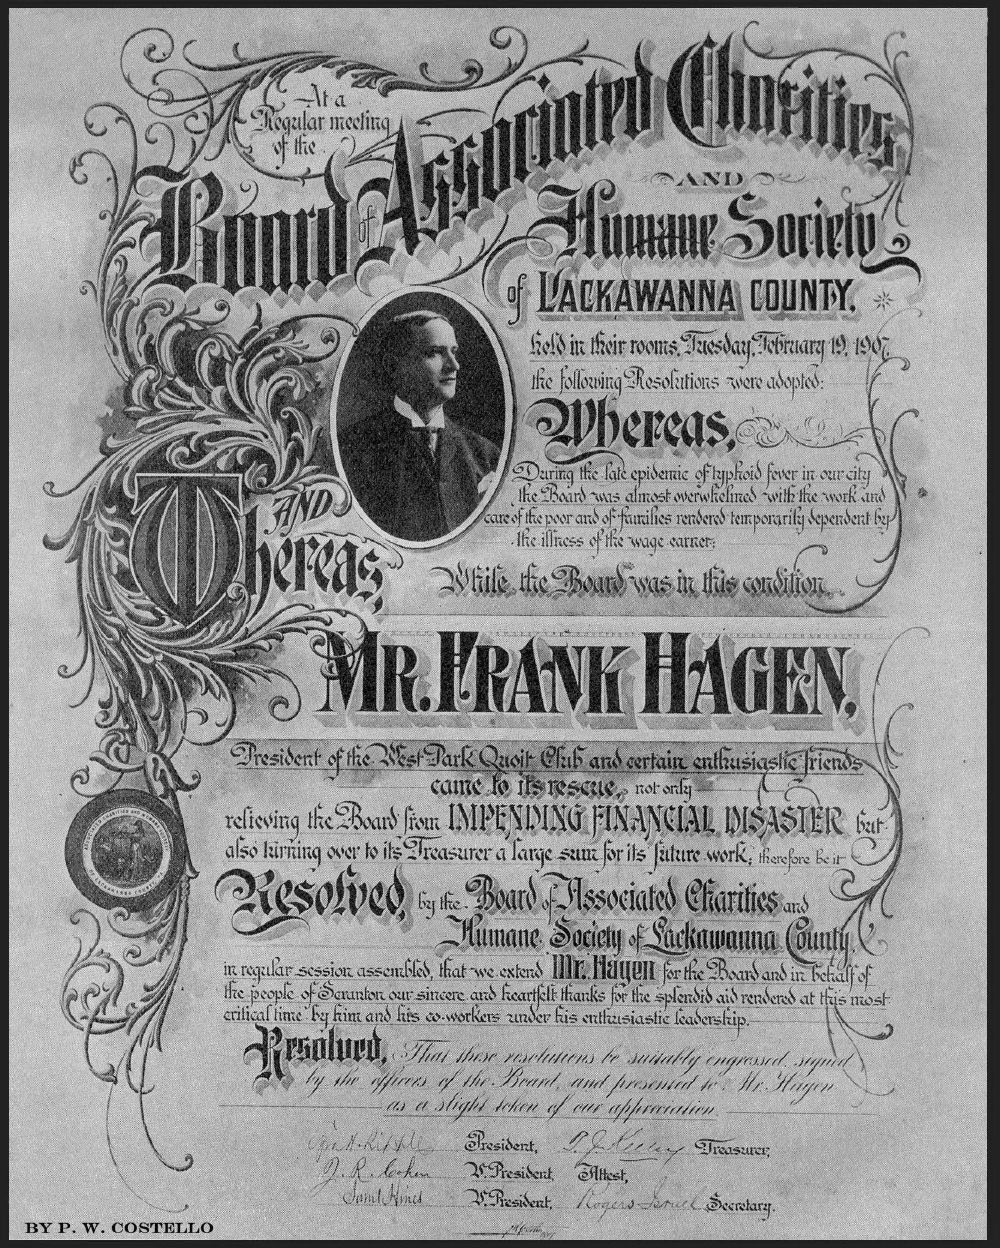 At a
Regular meeting
of the
Board of Associated Charities
AND
Humane Society
of LACKAWANNA COUNTY,
held in their rooms, Tuesday, February 19, 1907,
the following Resolutions were adopted:
Whereas,
During the late epidemic of typhoid fever in our city
the Board was almost overwhelmed with the work and
care of the poor and of families rendered temporarily dependent by
the illness of the wage earner;
AND
Whereas,
While the Board was in this condition
MR. FRANK HAGEN,
President of the West Park Quoit Club and certain enthusiastic friends
came to its rescue, not only
relieving the Board from IMPENDING FINANCIAL DISASTER but
also turning over to its Treasurer a large sum for its future work; therefore be it
Resolved, by the Board of Associated Charities and
Humane Society of Lackawanna County,
in regular session assembled, that we extend Mr. Hagen for the Board and in behalf of
the people of Scranton our sincere and heartfelt thanks for the splendid aid rendered at this most
critical time by him and his co-workers under his enthusiastic leadership.
Resolved, That these resolutions be suitably engrossed, signed
by the officers of the Board, and presented to Mr. Hagen
as a slight token of our appreciation.
President, Treasurer,
J. R. Cohen V. President, Attest,
Saml Hines V. President, Rogers Israel Secretary.
BY P. W. COSTELLO